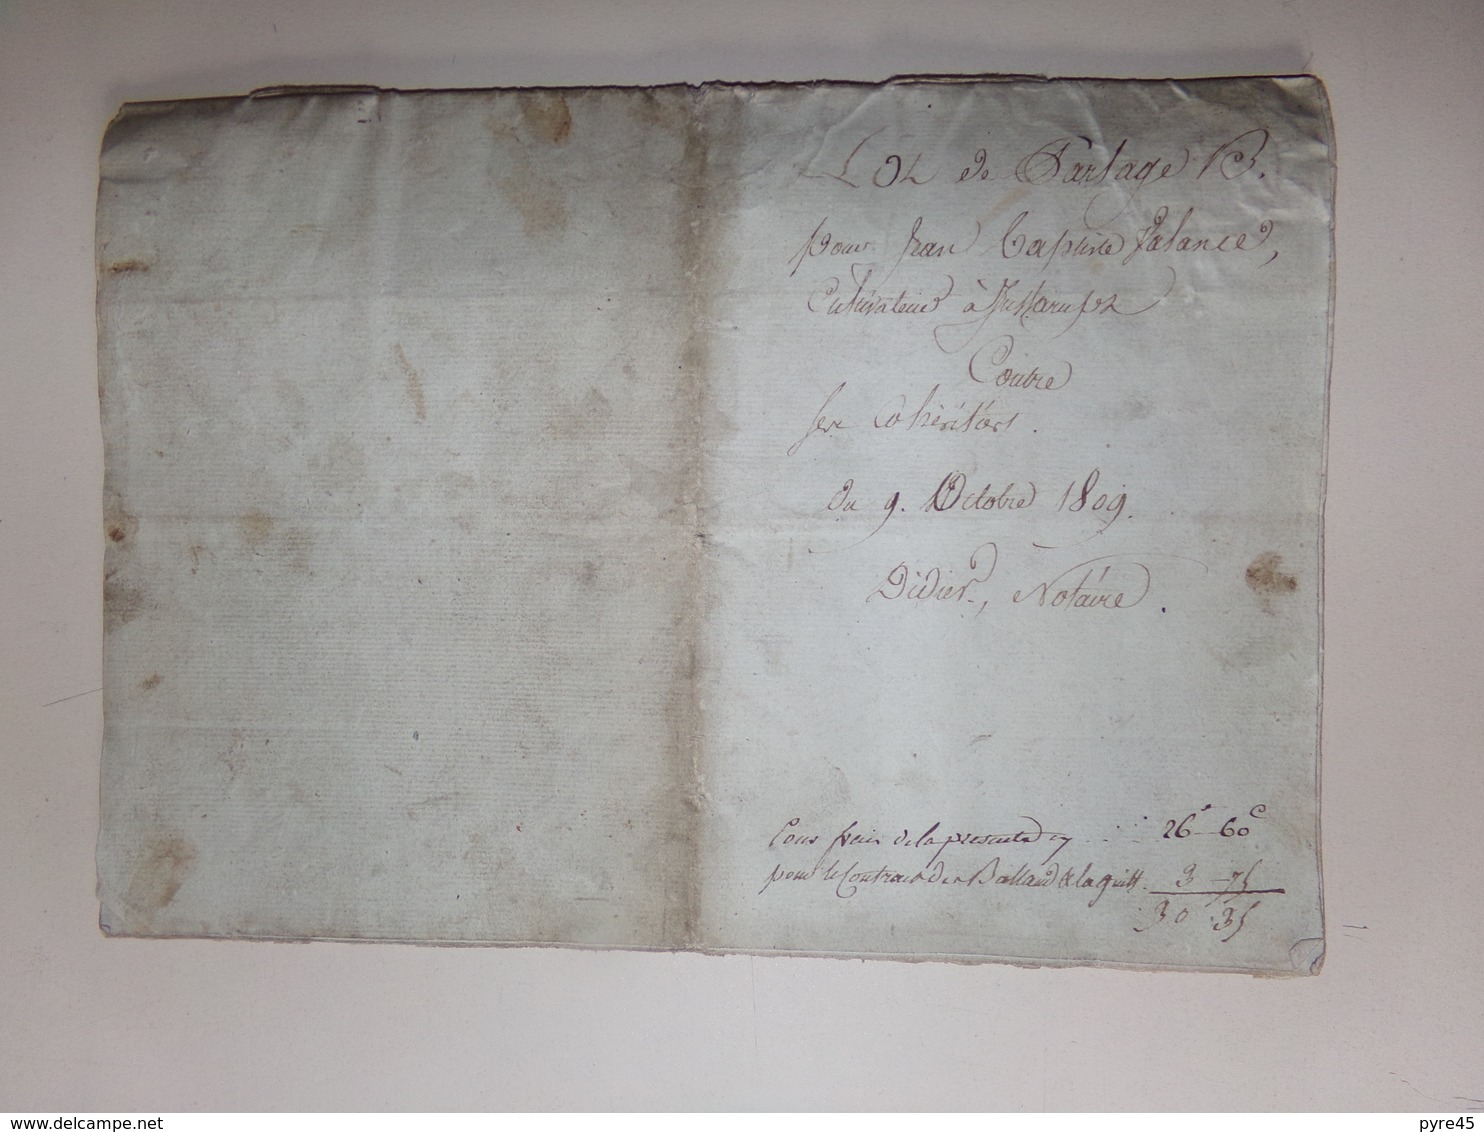 Lot de Partage B.
pour Jean Baptiste Valance,
Cultivateur à Jussarupt
Contre
ses Cohéritiers.
du 9. Octobre 1809.
Didier, Notaire.
Pour frais de la presente cy 26 f 60 c
pour le Contrat des Balland & la quitt. 3 75
30 35
delcampe.net
pyre45